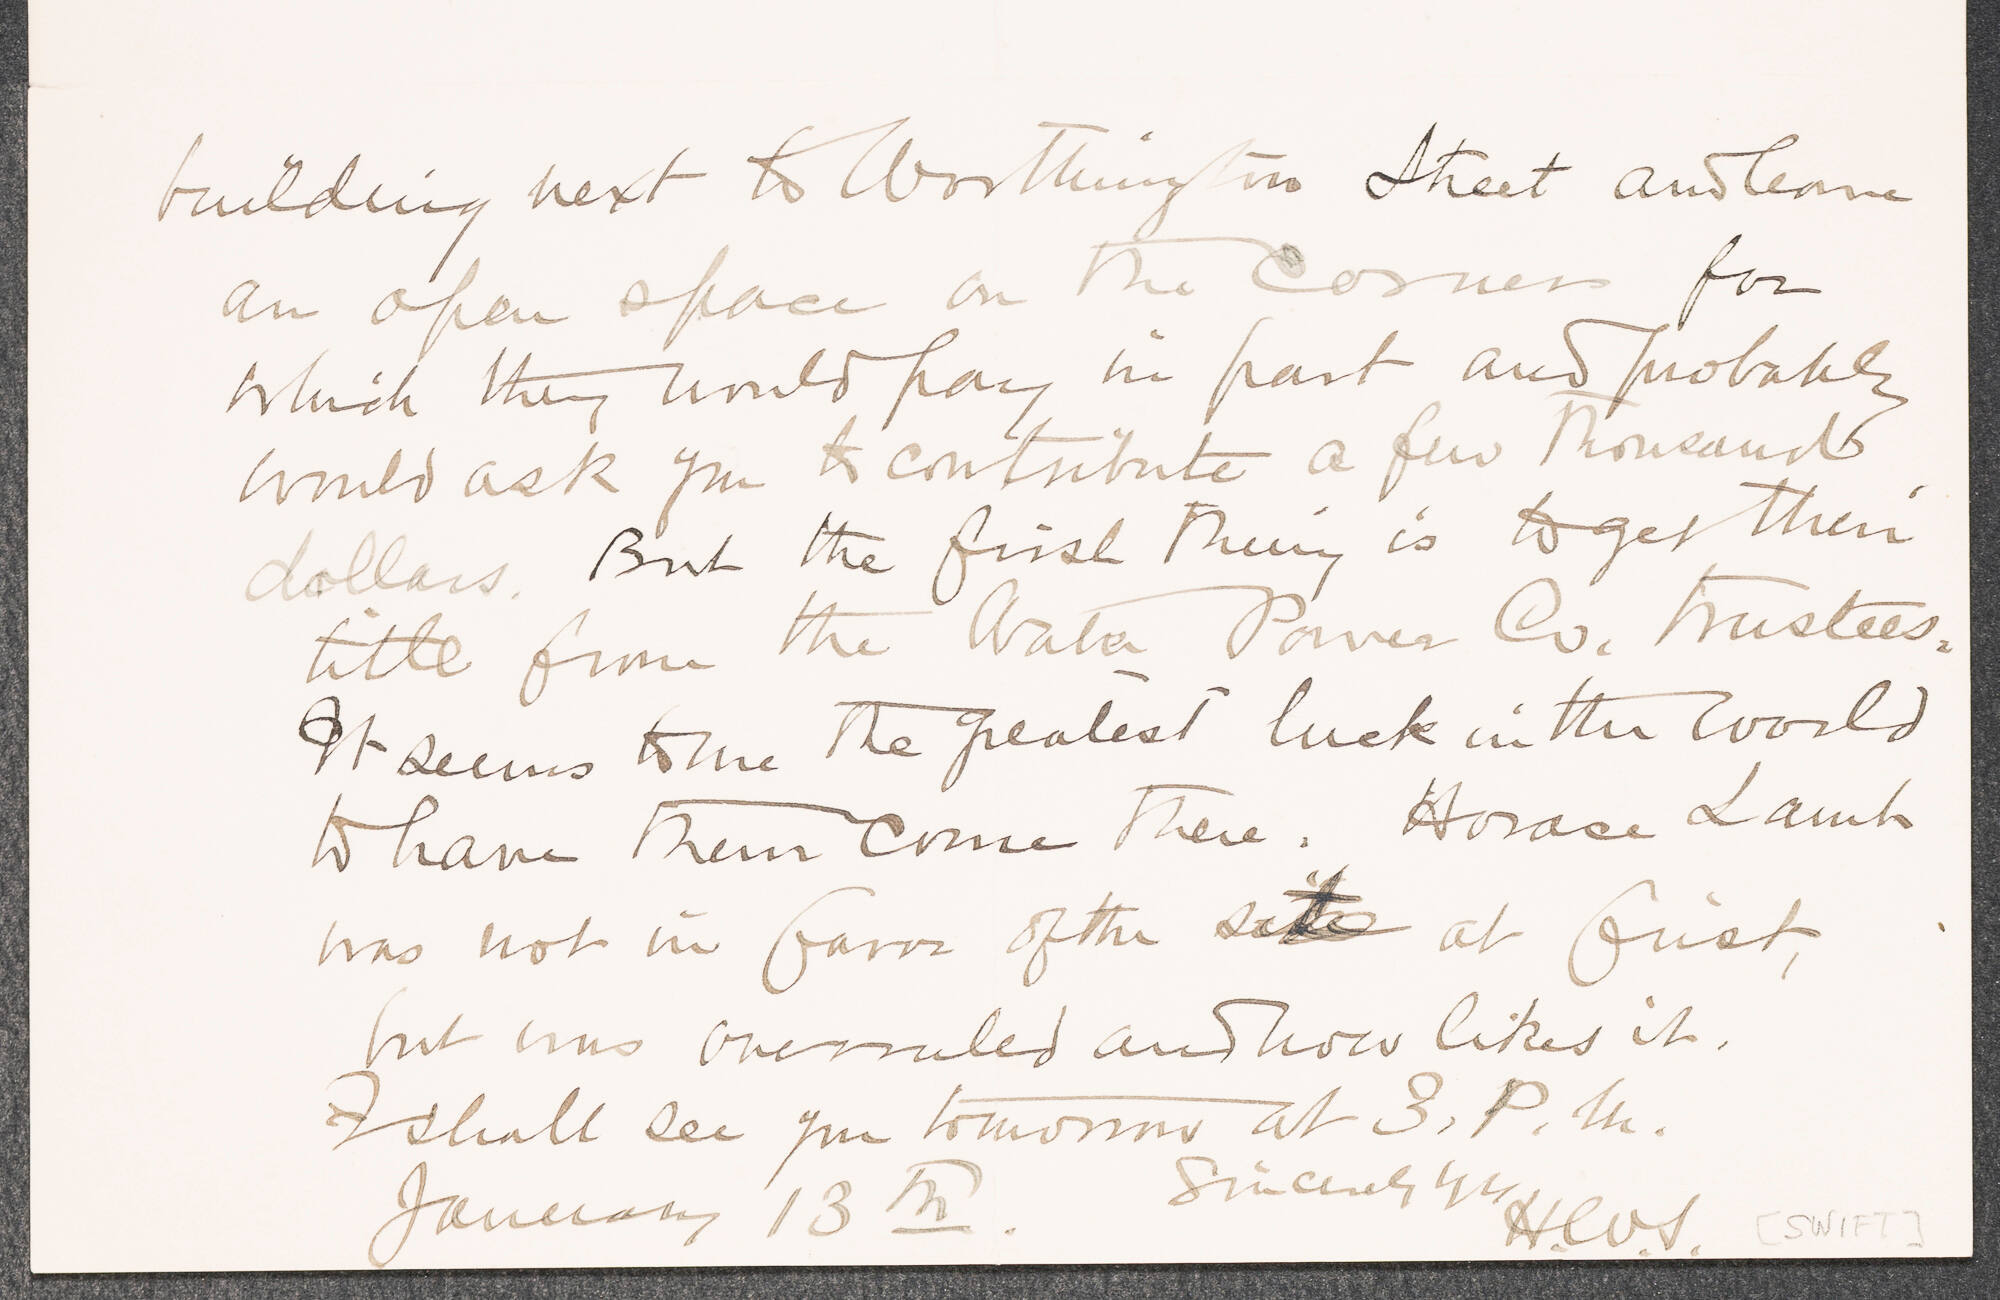 building next to Worthington Street and leave
an open space on the corner for
which they would pay in part and probably
would ask you to contribute a few thousand
dollars. But the first thing is to get their
title from the Water Power Co. trustees.
It seems to me the greatest luck in the world
to have them come there. Horace Lamb
was not in favor of the site at first,
but was overruled and now likes it.
I shall see you tomorrow at 3. P. M.
January 13th. Sincerely yrs
H.W.S. [SWIFT]